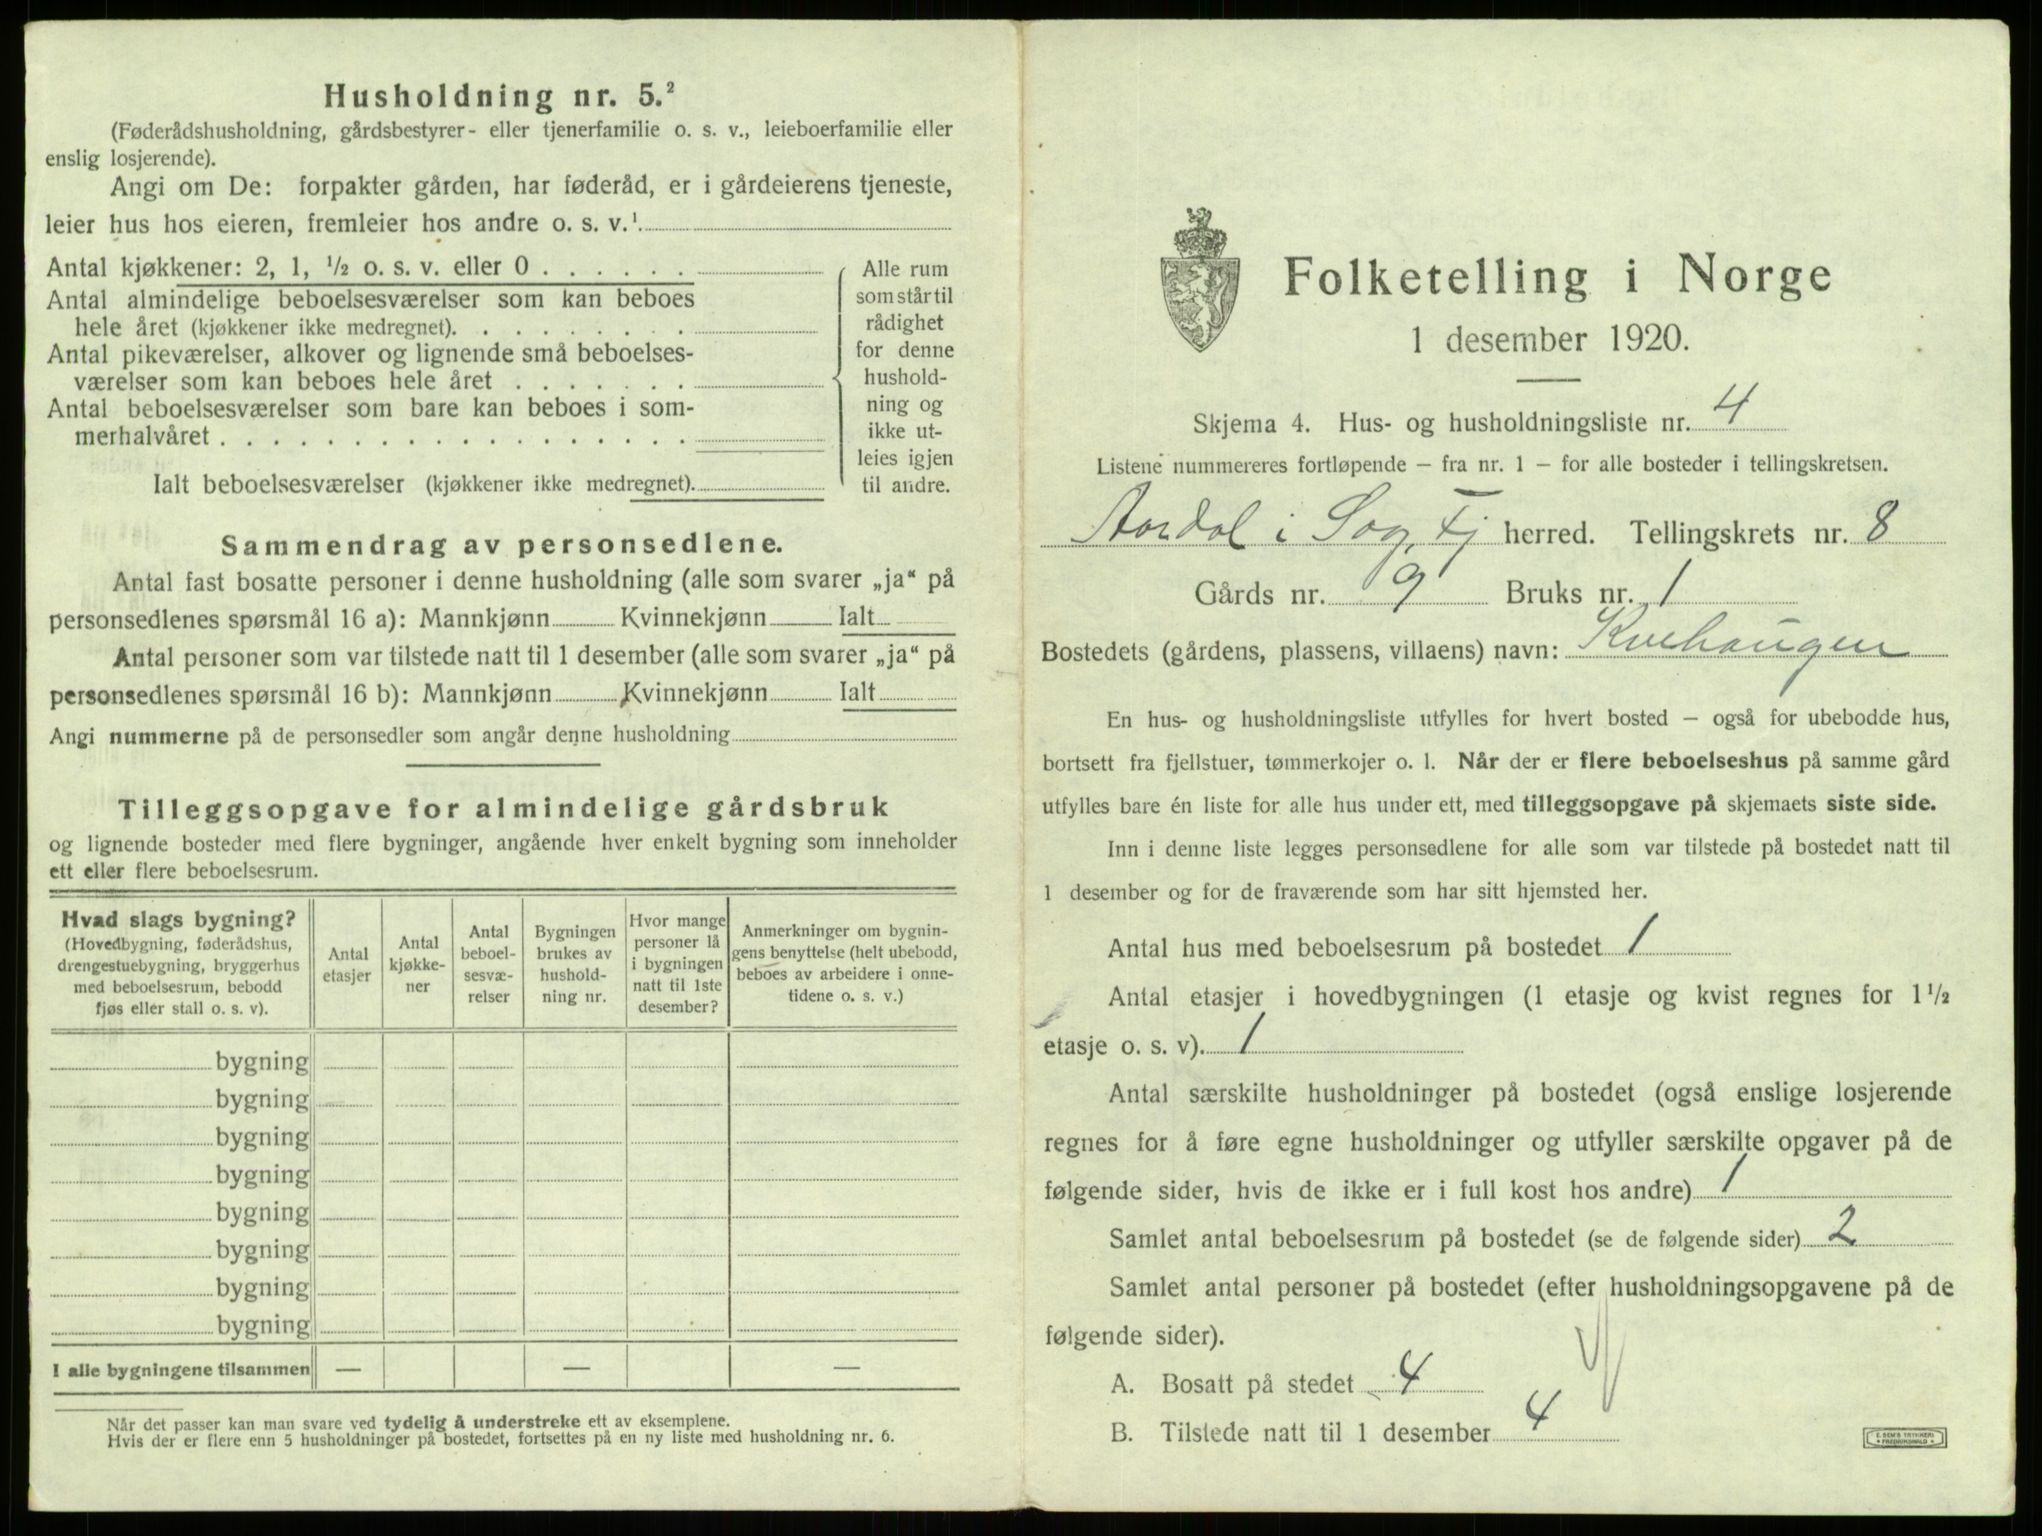 Husholdning nr. 5.²
(Føderådshusholdning, gårdsbestyrer- eller tjenerfamilie o. s. v., leieboerfamilie eller
enslig losjerende).
Angi om De: forpakter gården, har føderåd, er i gårdeierens tjeneste,
leier hus hos eieren, fremleier hos andre o. s. v.¹
Antal kjøkkener: 2, 1, ½ o. s. v. eller 0 . . . . . .
Antal almindelige beboelsesværelser som kan beboes
hele året (kjøkkener ikke medregnet). . . . . . . . .
Antal pikeværelser, alkover og lignende små beboelses-
værelser som kan beboes hele året . . . . . . .
Antal beboelsesværelser som bare kan beboes i som-
merhalvåret . . . . . . . . . . . . . . . . . .
Ialt beboelsesværelser (kjøkkener ikke medregnet).
Alle rum
som står til
rådighet
for denne
hushold-
ning og
ikke ut-
leies igjen
til andre.
Sammendrag av personsedlene.
Antal fast bosatte personer i denne husholdning (alle som svarer „ja“ på
personsedlenes spørsmål 16 a): Mannkjønn Kvinnekjønn Ialt
Antal personer som var tilstede natt til 1 desember (alle som svarer „ja“ på
personsedlenes spørsmål 16 b): Mannkjønn Kvinnekjønn Ialt
Angi nummerne på de personsedler som angår denne husholdning
Tilleggsopgave for almindelige gårdsbruk
og lignende bosteder med flere bygninger, angående hver enkelt bygning som inneholder
ett eller flere beboelsesrum.
Hvad slags bygning?
(Hovedbygning, føderådshus,
drengestuebygning, bryggerhus
med beboelsesrum, bebodd
fjøs eller stall o. s. v).
Antal
etasjer
Antal
kjøkke-
ner
Antal
beboel-
sesvæ-
relser
Bygningen
brukes av
hushold-
ning nr.
Hvor mange
personer lå
i bygningen
natt til 1ste
desember?
Anmerkninger om bygnin-
gens benyttelse (helt ubebodd,
beboes av arbeidere i onne-
tidene o. s. v.)
bygning
bygning
bygning
bygning
bygning
bygning
bygning
bygning
I alle bygningene tilsammen — — —
Når det passer kan man svare ved tydelig å understreke ett av eksemplene.
Hvis der er flere enn 5 husholdninger på bostedet, fortsettes på en ny liste med husholdning nr. 6.
Folketelling i Norge
1 desember 1920.
Skjema 4. Hus- og husholdningsliste nr. 4
Listene nummereres fortløpende — fra nr. 1 — for alle bosteder i tellingskretsen.
Aardal i Sogn Fj herred. Tellingskrets nr. 8
Gårds nr. 9 Bruks nr. 1
Bostedets (gårdens, plassens, villaens) navn: Kvehaugen
En hus- og husholdningsliste utfylles for hvert bosted — også for ubebodde hus,
bortsett fra fjellstuer, tømmerkojer o. l. Når der er flere beboelseshus på samme gård
utfylles bare én liste for alle hus under ett, med tilleggsopgave på skjemaets siste side.
Inn i denne liste legges personsedlene for alle som var tilstede på bostedet natt til
1 desember og for de fraværende som har sitt hjemsted her.
Antal hus med beboelsesrum på bostedet 1
Antal etasjer i hovedbygningen (1 etasje og kvist regnes for 1½
etasje o. s. v). 1
Antal særskilte husholdninger på bostedet (også enslige losjerende
regnes for å føre egne husholdninger og utfyller særskilte opgaver på de
følgende sider, hvis de ikke er i full kost hos andre) 1
Samlet antal beboelsesrum på bostedet (se de følgende sider) 2
Samlet antal personer på bostedet (efter husholdningsopgavene på de
følgende sider).
A. Bosatt på stedet 4
B. Tilstede natt til 1 desember 4
E. SEM'S TRYKKERI
FREDRIKSHALD